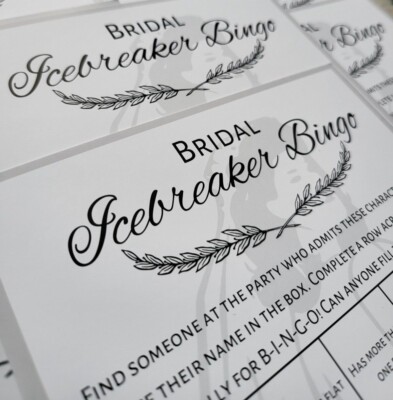 BRIDAL
Icebreaker Bingo
BRIDAL
Icebreaker Bingo
FIND SOMEONE AT THE PARTY WHO ADMITS THESE CHARAC
THEIR NAME IN THE BOX. COMPLETE A ROW ACR
FOR B-I-N-G-O! CAN ANYONE FILL
FLAT
HAS MORE TH
ONE